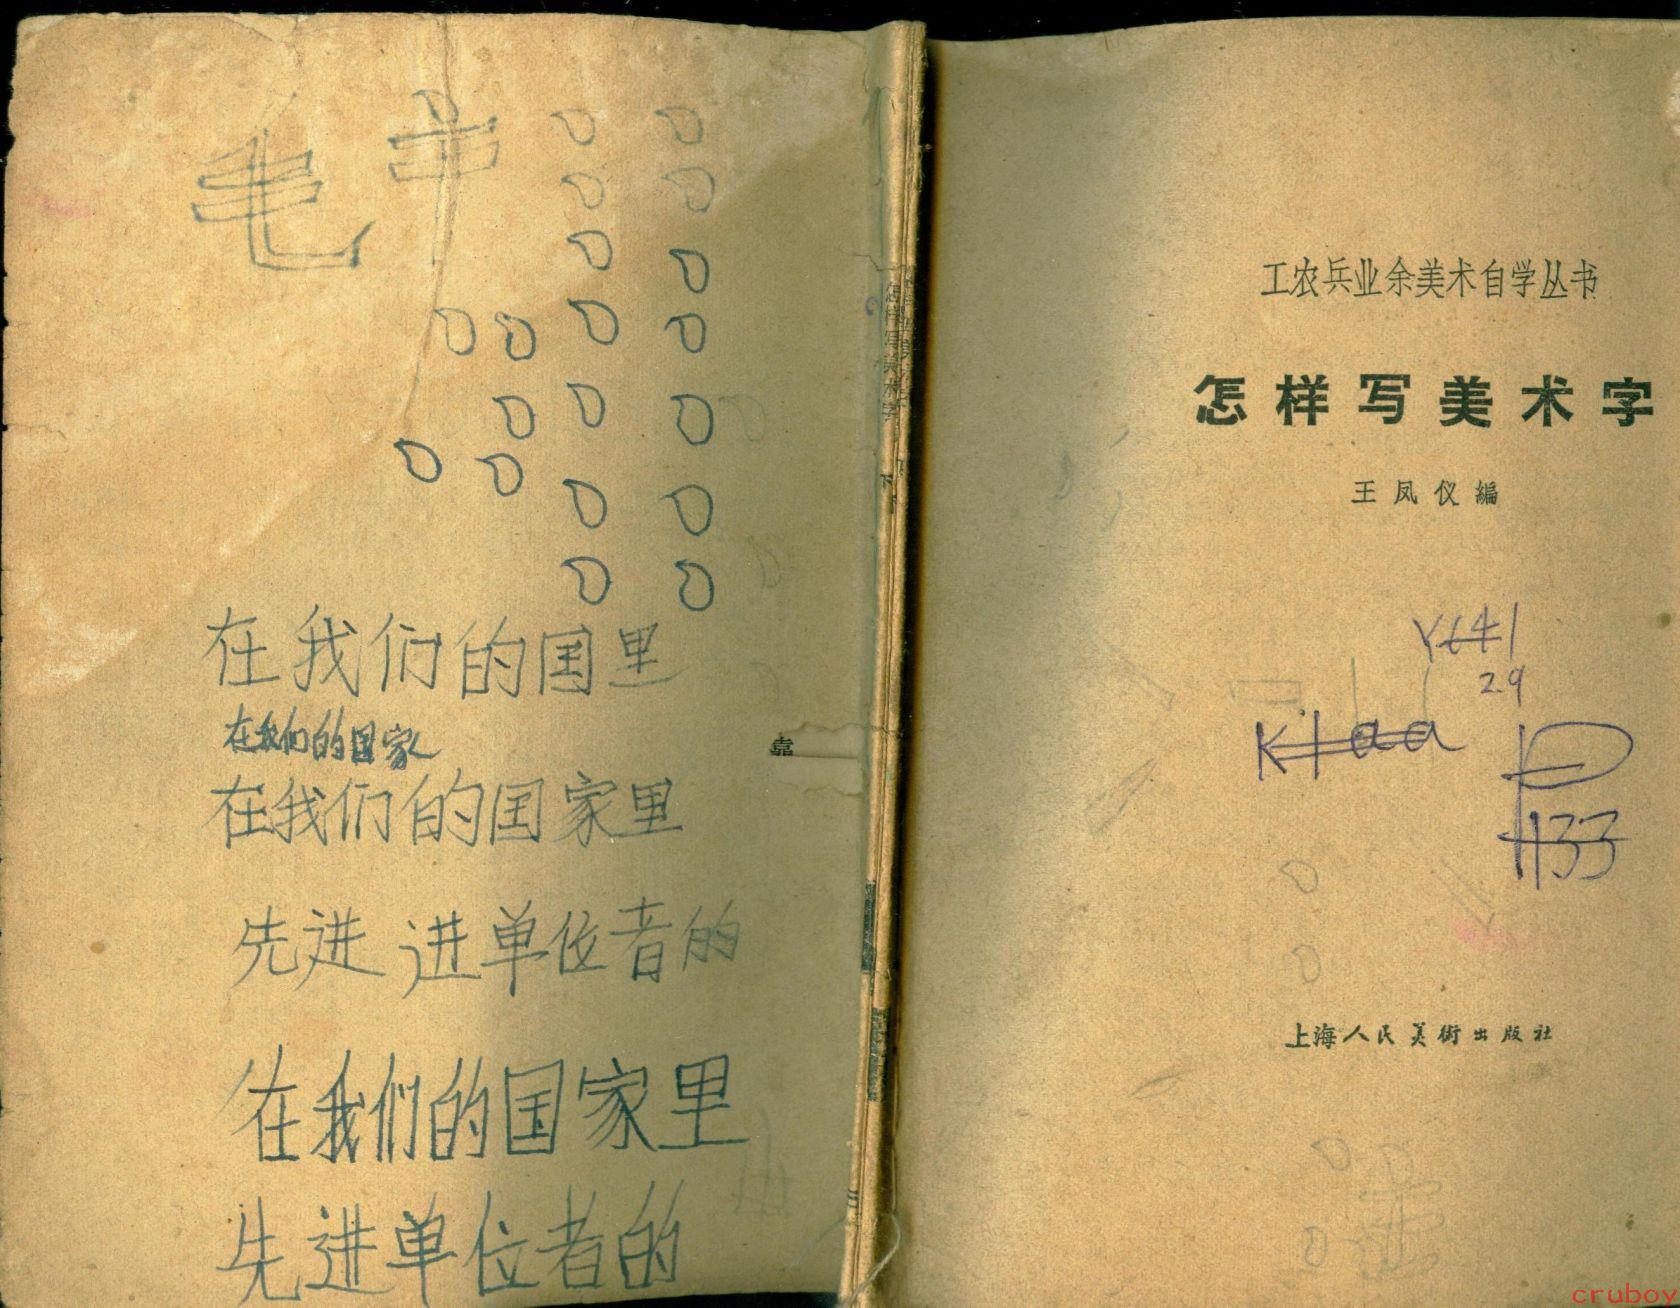 毛
在我们的国里
在我们的国家
在我们的国家里
先进 进单位者的
在我们的国家里
先进单位者的
怎样写美术字
靠
工农兵业余美术自学丛书
怎样写美术字
王凤仪編
29
H33
上海人民美術出版社
cruboy